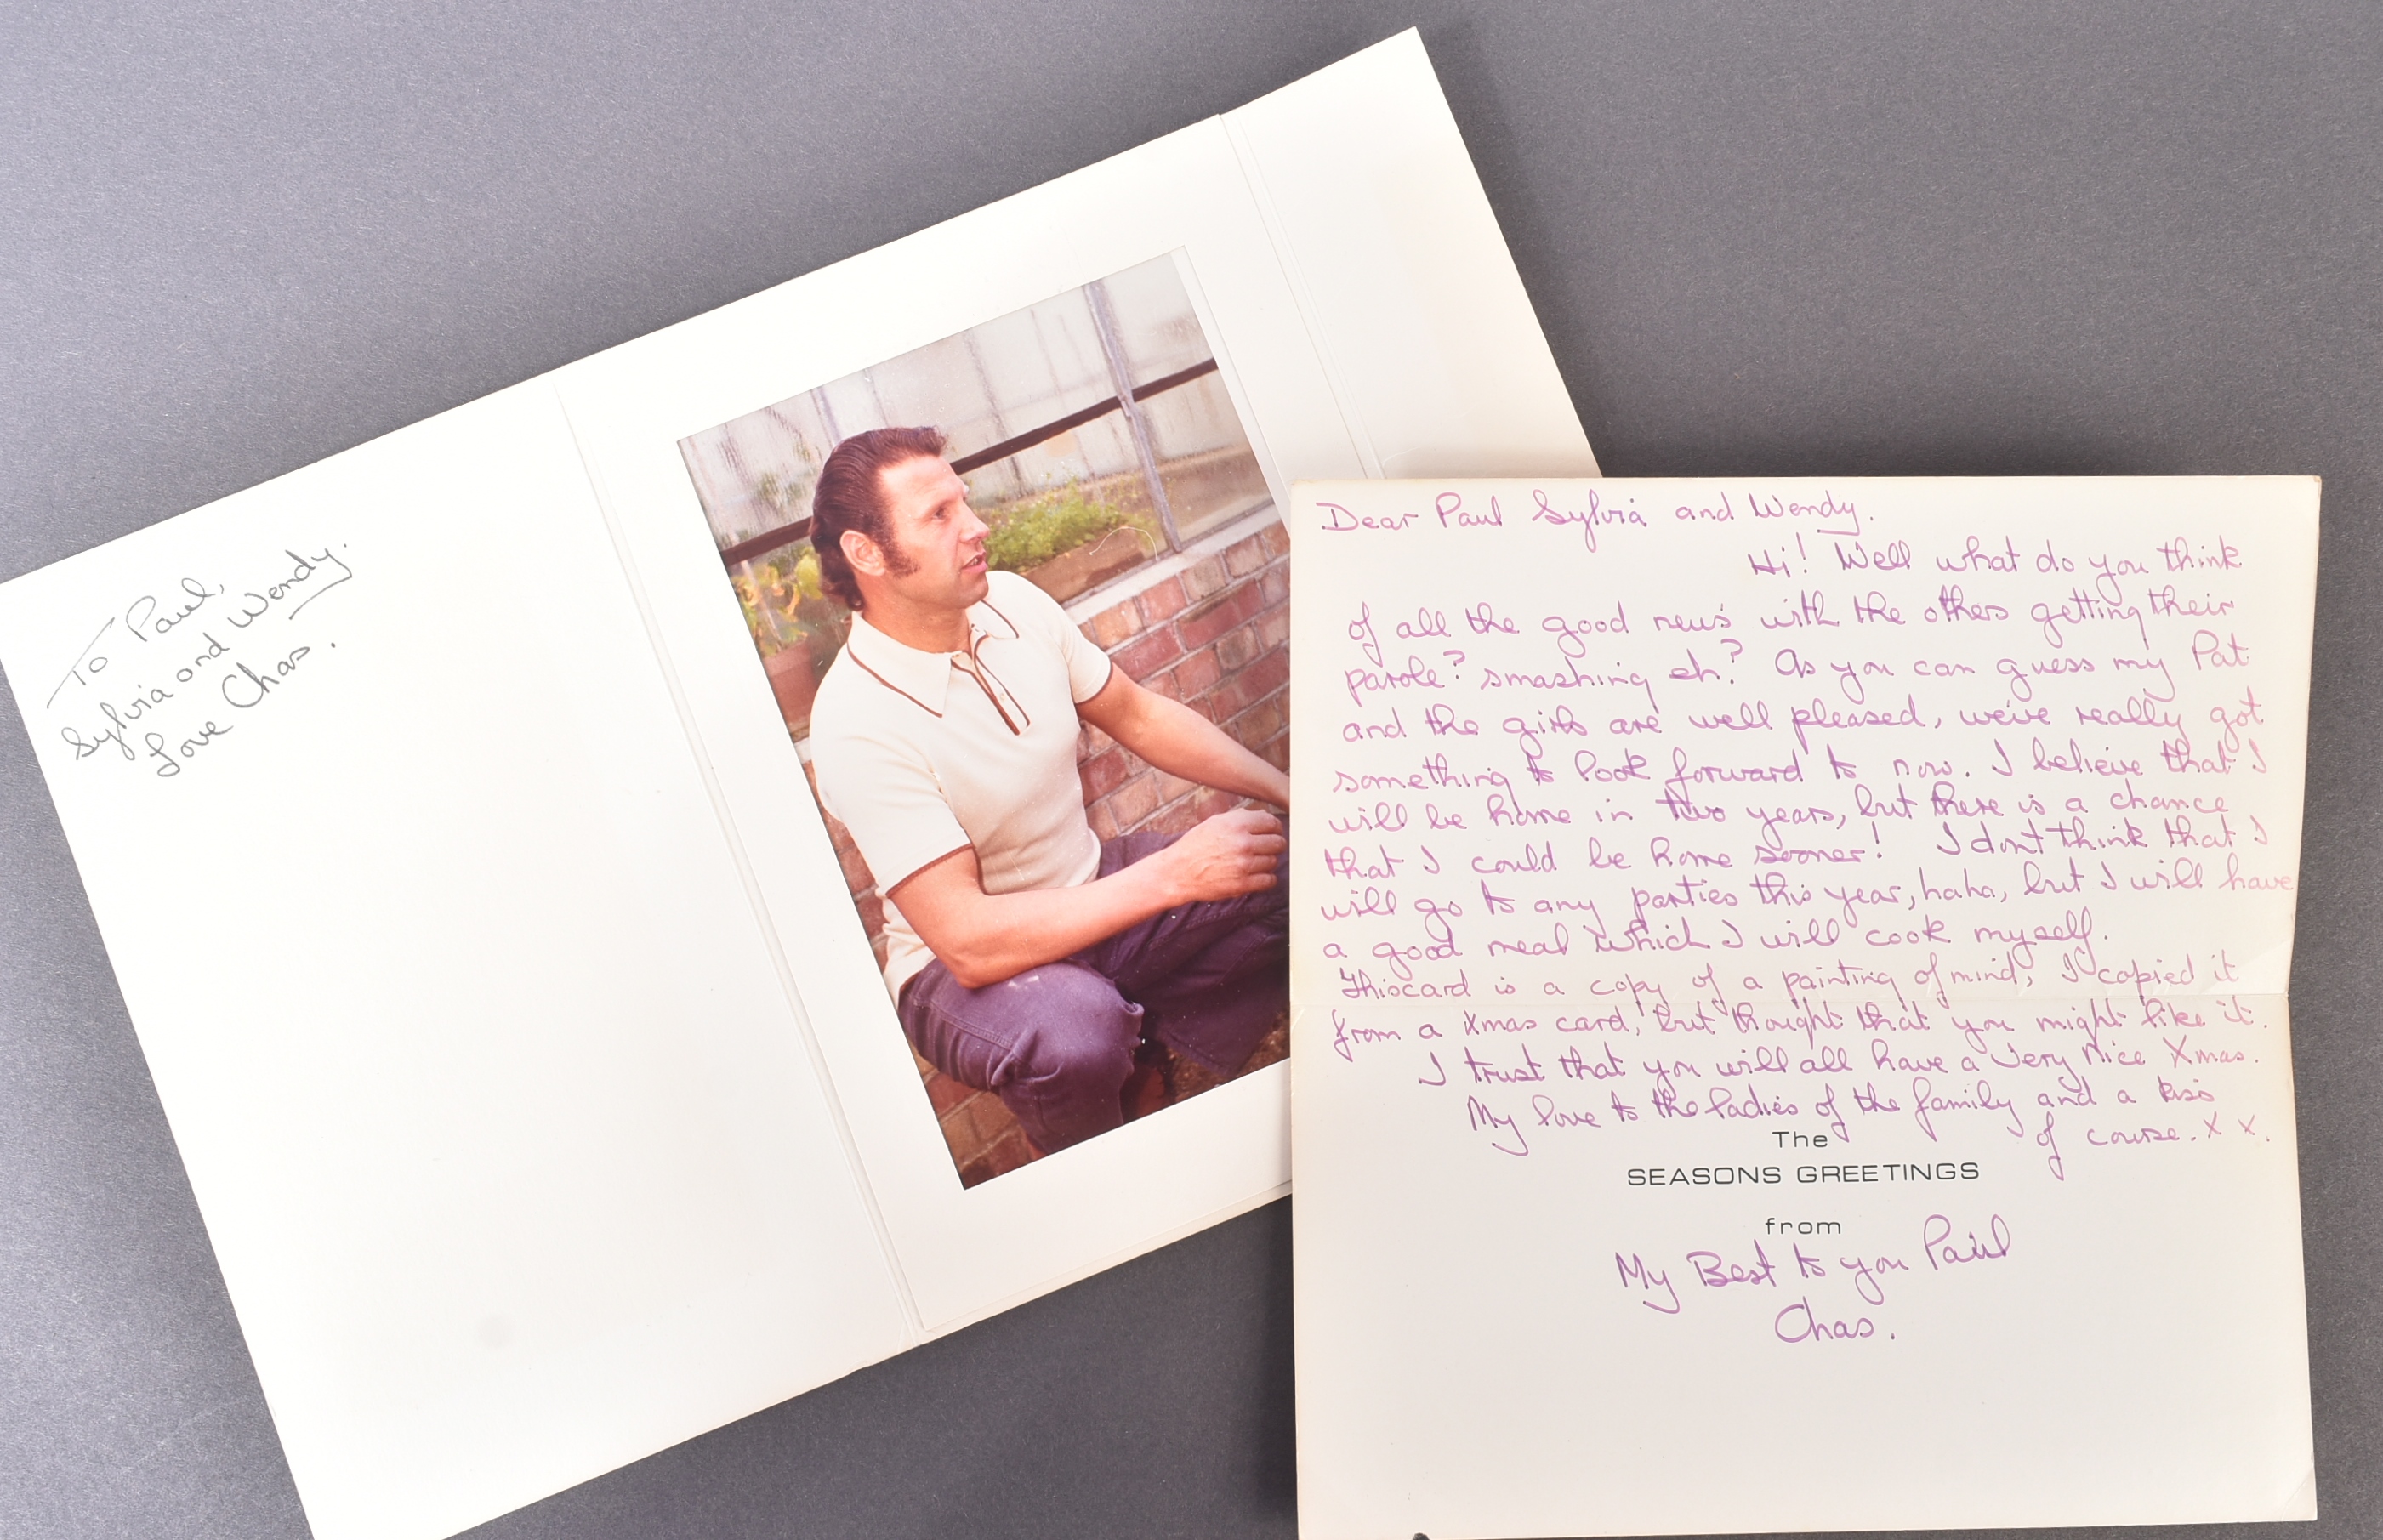 To Paul,
Sylvia and Wendy.
Love Chas.
Dear Paul Sylvia and Wendy.
Hi! Well what do you think
of all the good news with the others getting their
parole? smashing eh? As you can guess my Pat
and the girls are well pleased, we've really got
something to look forward to now. I believe that I
will be home in two years, but there is a chance
that I could be home sooner! I dont think that I
will go to any parties this year, haha, but I will have
a good meal which I will cook myself.
This card is a copy of a painting of mind, I copied it
from a Xmas card, but thought that you might like it.
I trust that you will all have a very nice Xmas.
My love to the ladies of the family and a kiss
of course. X X.
The
SEASONS GREETINGS
from
My Best to you Paul
Chas.